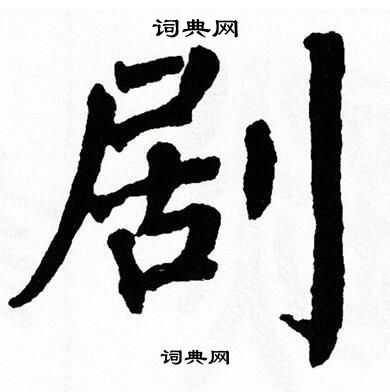 词典网
剧
词典网